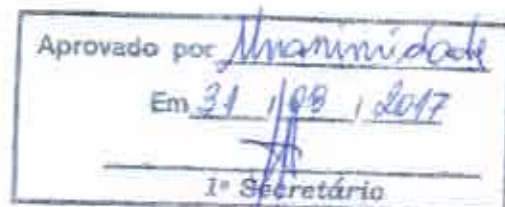 Aprovado por Unanimidade
Em 31 / 08 / 2017
1º Secretário